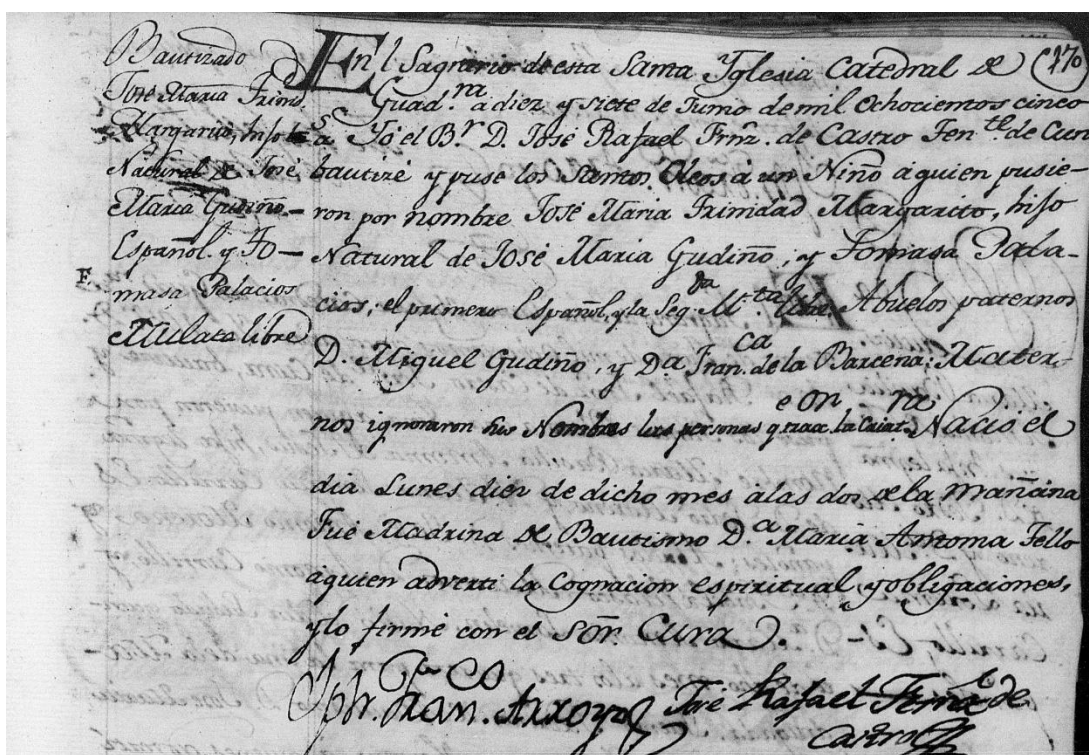 170
Bautizado
José Maria Trinid.
Margarito, hijo
Natural de José
Maria Gudiño
Español. y To—
masa Palacios
Mulata libre
F.
En l Sagrario de esta Santa Yglesia Catedral de
Guad.ra a diez y siete de Junio de mil ochocientos cinco
Yó el B.r D. José Rafael Frnz. de Castro Ten.te de Cura
bautizé y puse los Santos Oleos á un Niño á quien pusie-
ron por nombre José Maria Trinidad Margarito, hijo
Natural de José Maria Gudiño, y Tomasa Pala-
cios; el primero Español, y la Seg.da M.ta libre. Abuelos paternos
D. Miguel Gudiño, y D.a Fran.ca de la Barcena: Mater-
nos ignoraron sus Nombres las personas q.e trax.on la Criat.ra Nacio el
dia Lunes diez de dicho mes á las dos de la mañana
Fué Madrina de Bautismo D.a Maria Antonia Tello
aquien adverti la Cognacion espiritual y obligaciones,
y lo firmé con el Sõr. Cura.
Jph. Fran.co Arroyo
José Rafael Fernz de
Castro